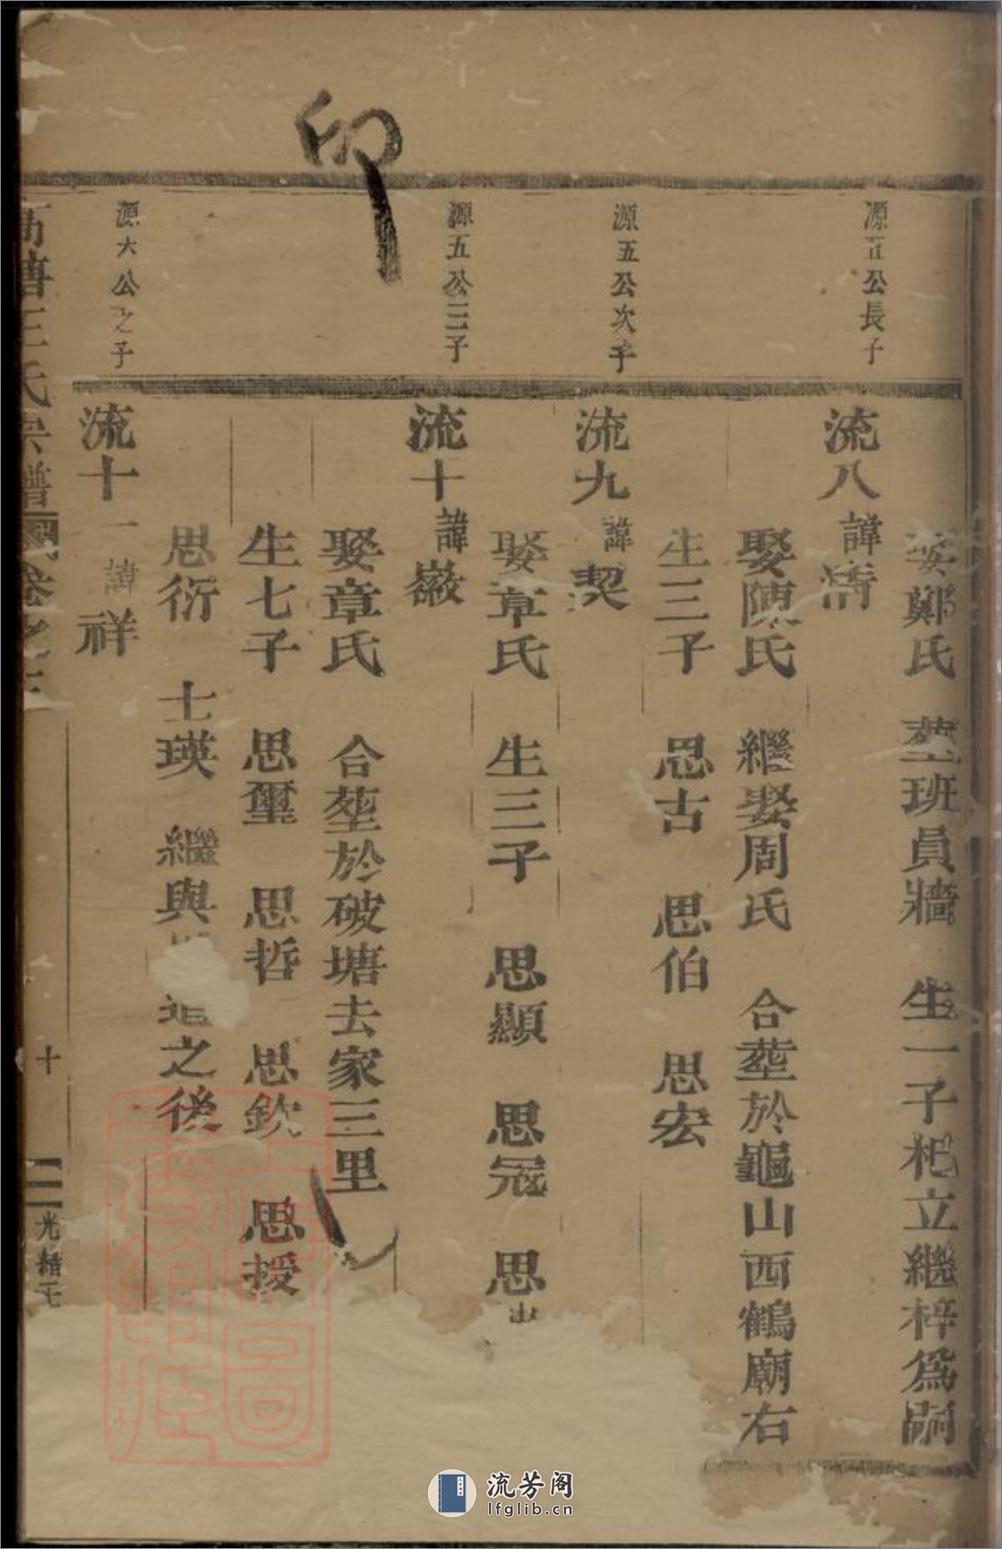 印
娶鄭氏 塟班員牆 生一子杞立繼梓爲嗣
源五公長子
流八諱濟
娶陳氏 繼娶周氏 合塟於龜山西鶴廟右
生三子 思古 思伯 思宏
源五公次子
流九諱契
娶章氏 生三子 思顯 思冠 思
源五公三子
流十諱嚴
娶章氏 合塟於破塘去家三里
生七子 思璽 思哲 思欽 思授
思衍 士瑛 繼與 之後
源六公之子
流十一諱祥
塘王氏宗譜 卷之
十
光緒
流芳阁
lfglib.cn